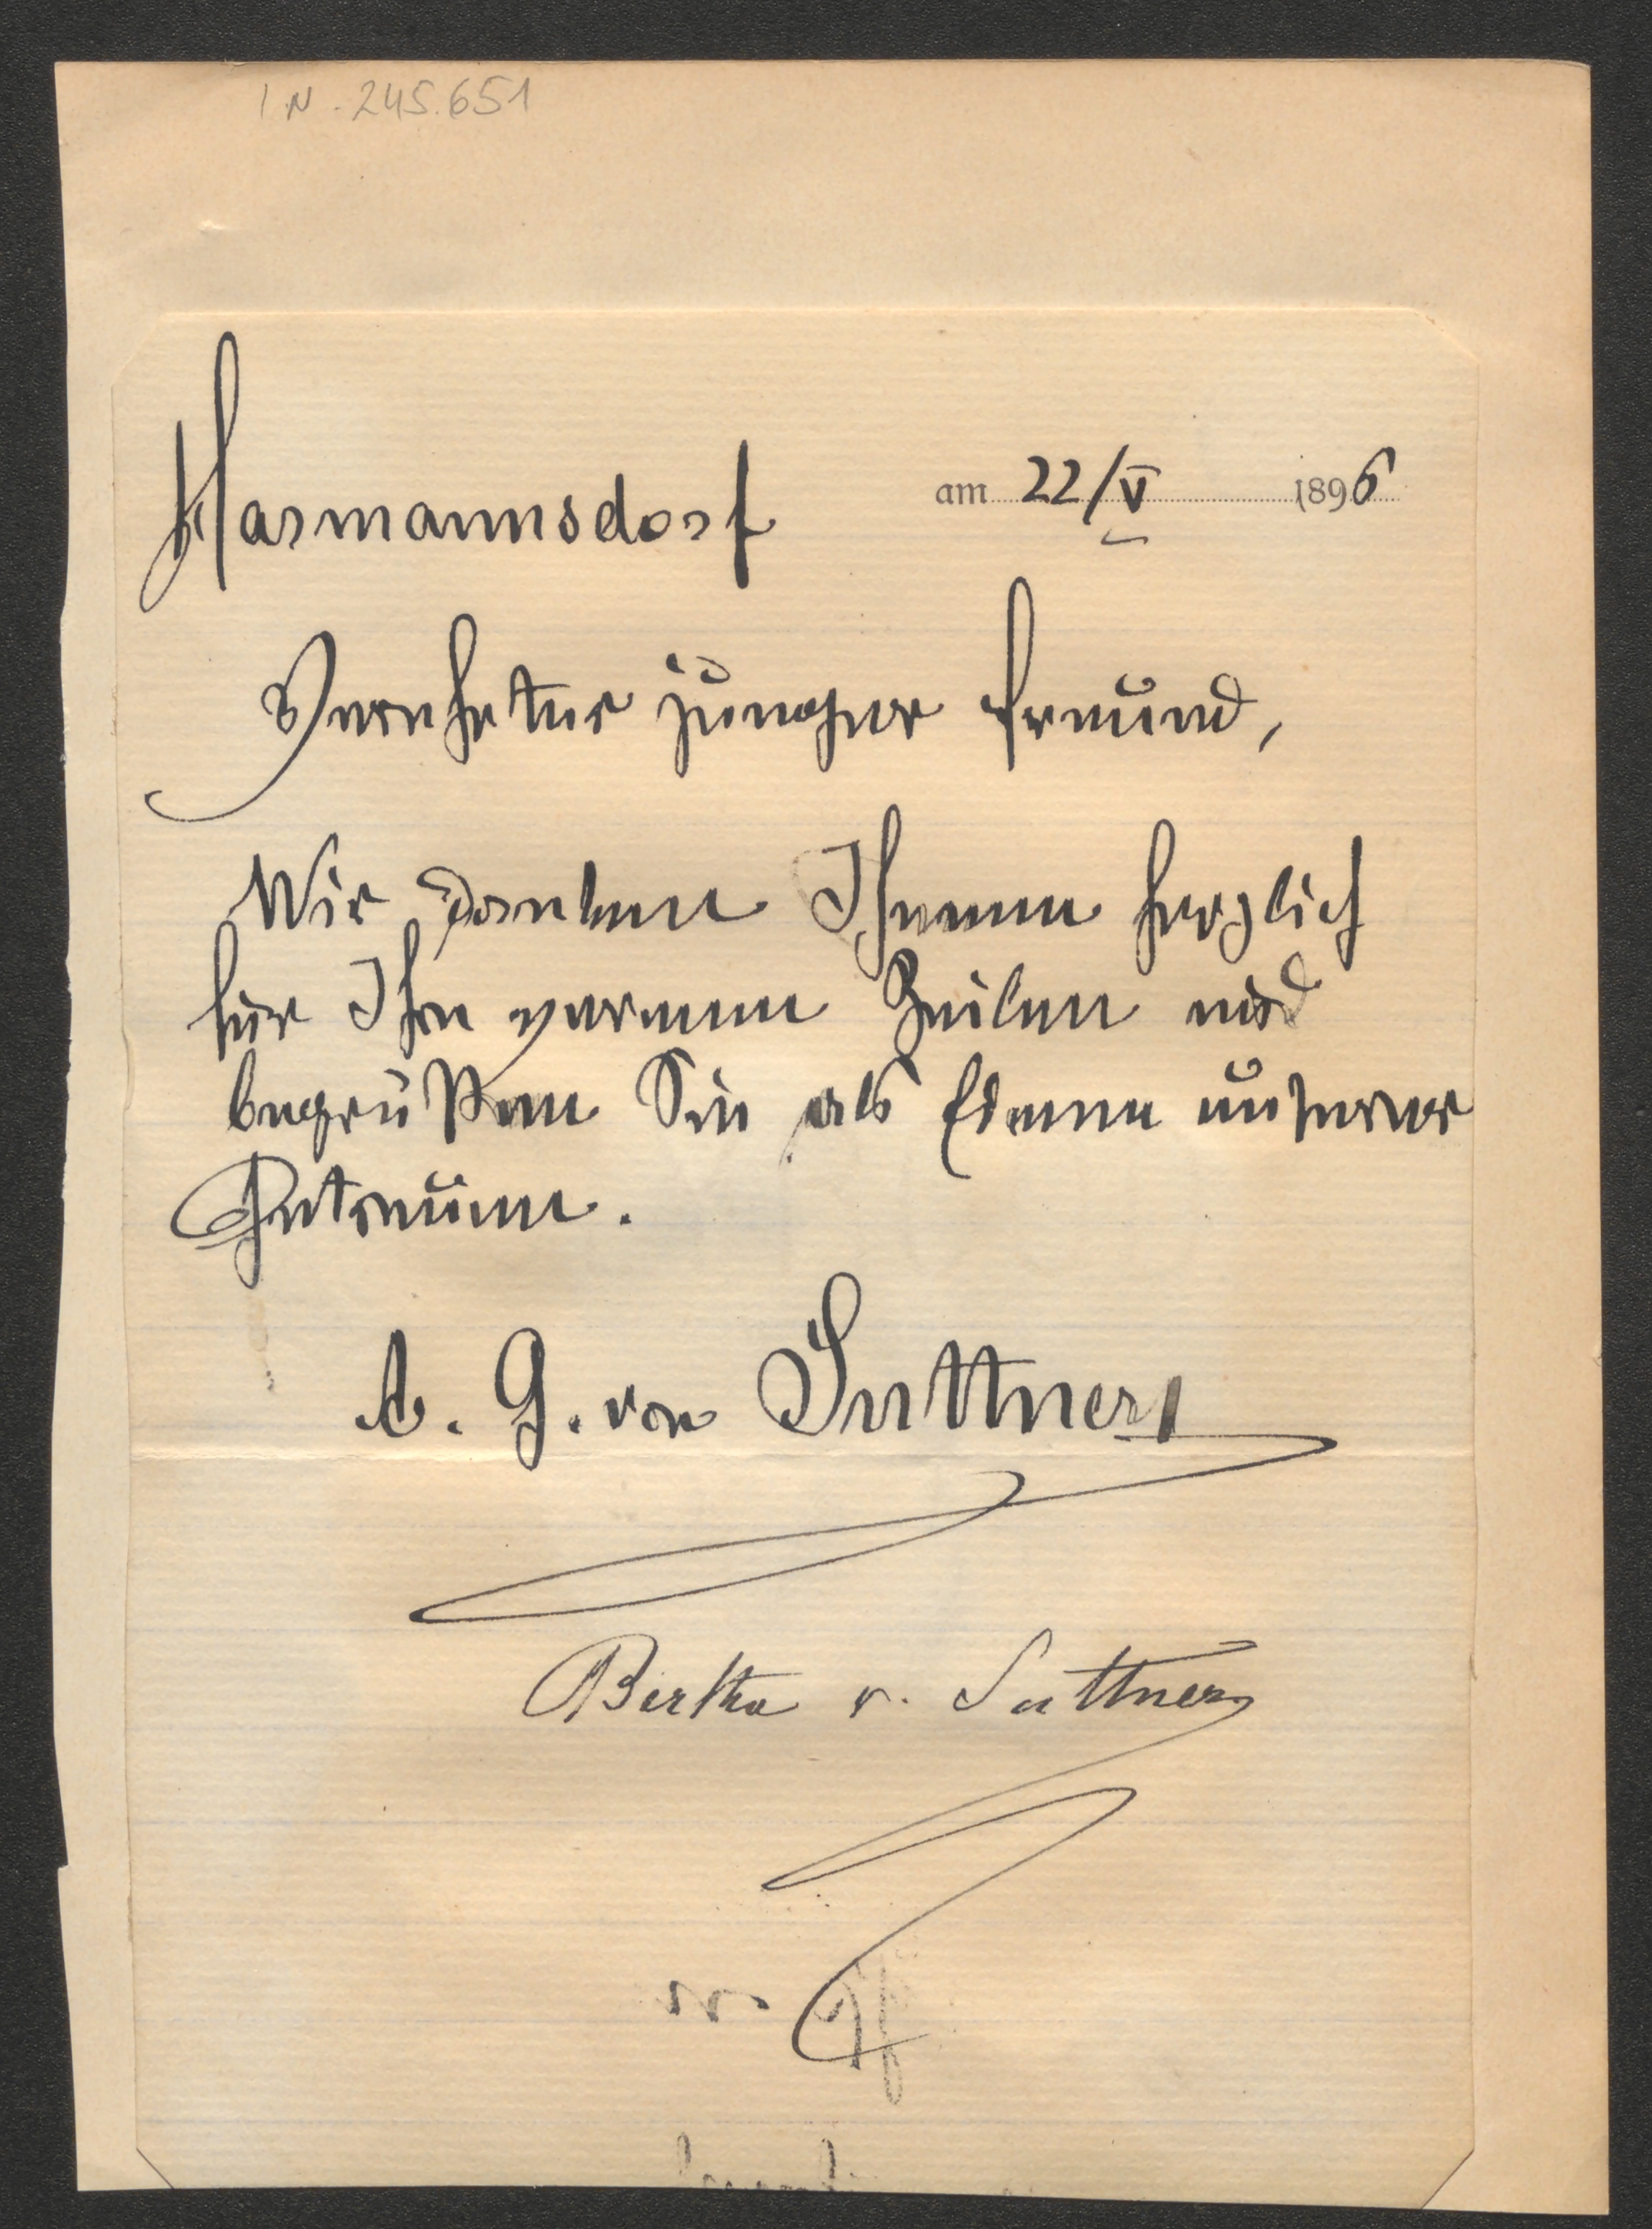 I.N. 245.651
Harmannsdorf am 22/V 1896
Verehrter junger Freund,
Wir danken Ihnen herzlich
für Ihre warmen Zeilen und
begrüßen Sie als Einen unserer
Getreuen.
A. G. von Suttner
Bertha v. Suttner